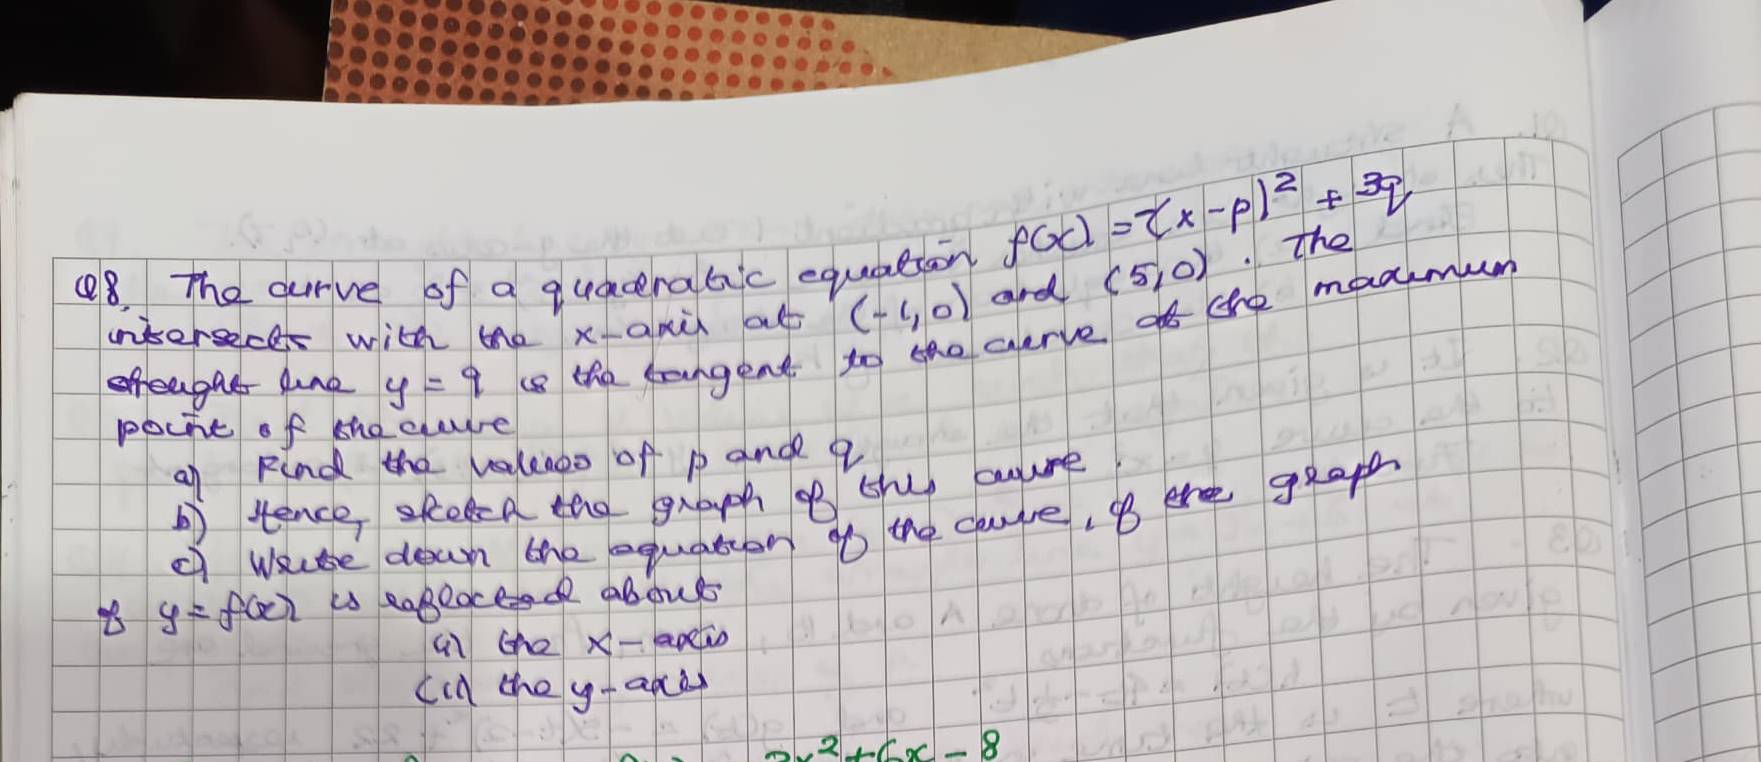 Q8. The curve of a quadratic equation f(x) = -(x-p)² + 3q
intersects with the x-axis at (-1,0) and (5,0). The
straight line y = 9 is the tangent to the curve at the maximum
point of the curve
a) Find the values of p and q
b) Hence, sketch the graph of this curve.
c) Write down the equation of the curve, if the graph
of y = f(x) is reflected about
(i) the x-axis
(ii) the y-axis
x² + 6x - 8